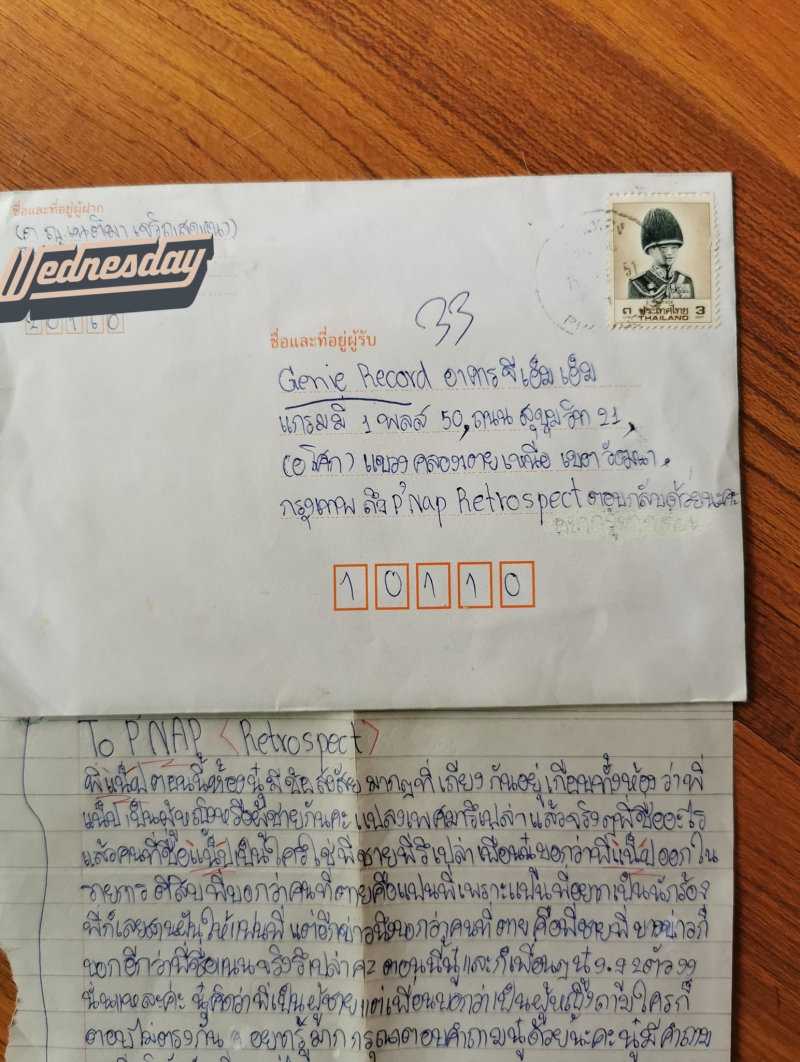 ชื่อและที่อยู่ผู้ฝาก
Wednesday
10160
ประเทศไทย
๓ 3
THAILAND
33
ชื่อและที่อยู่ผู้รับ
Genie Record อาคารจีเอ็มเอ็ม
แกรมมี่ 1 พลส 50, ถนน สุขุมวิท 21,
(อโศก) แขวง คลองเตยเหนือ เขต วัฒนา.
กรุงเทพ ถึง P'Nap Retrospect ตอบกลับด้วยนะคะ
10110
To P'NAP <Retrospect>
พี่แน็ปตอนนี้ห้องนู๋มีข้อสงสัยมากๆที่เถียงกันอยู่เกือบทั้งห้อง ว่าพี่
แน็ปเป็นผู้หญิงหรือผู้ชายกันคะ แปลงเพศมารึเปล่า แล้วจริงๆพี่ชื่ออะไร
แล้วคนที่ชื่อแน็ปเป็นใครใช่พี่ชายพี่รึเปล่า เพื่อนนู๋บอกว่าพี่แน็ปออกใน
รายการ ตีสิบ พี่บอกว่าคนที่ตายคือแฟนพี่เพราะแฟนพี่อยากเป็นนักร้อง
พี่ก็เลยสานฝันให้แฟนพี่ แต่อีกข่าวนึงบอกว่าคนที่ตายคือพี่ชายพี่ บางข่าวก็
บอกอีกว่าพี่ชื่อแนนจริงรึเปล่าคะ ตอนนี้นู๋และก็เพื่อนๆนู๋
นั่นแหละค่ะ นู๋คิดว่าพี่เป็นผู้ชายแต่เพื่อนบอกว่าเป็นผู้หญิงถามใครก็
ตอบไม่ตรงกัน อยากรู้มาก กรุณาตอบคำถามนู๋ด้วยนะคะนู๋มีคำถาม